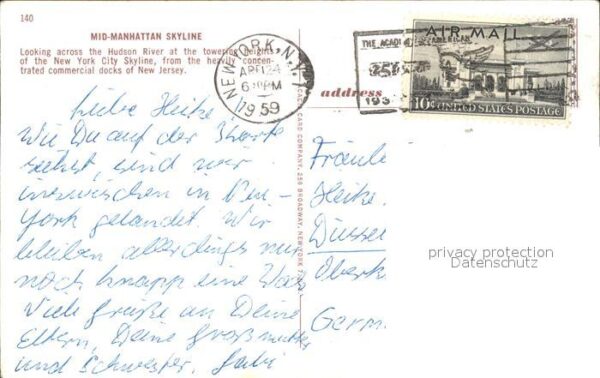 140
MID-MANHATTAN SKYLINE
Looking across the Hudson River at the towering heights
of the New York City Skyline, from the heavily concen-
trated commercial docks of New Jersey.
NEW YORK, N.Y. 1
APR 24
6 PM
1959
THE ACADI AMERICAN
193
AIR MAIL
10¢ UNITED STATES POSTAGE
address
CARD COMPANY, 259 BROADWAY, NEW YORK 7
Liebe Heike,
Wie Du auf der Karte
siehst, sind wir
inzwischen in New-
york gelandet. Wir
bleiben allerdings nur
noch knapp eine Woc
Viele Grüße an Deine
Eltern, Deine Großmutter
und Schwester, Gabi
Fräule
Heike
Düssel
Oberk
Germ.
privacy protection
Datenschutz